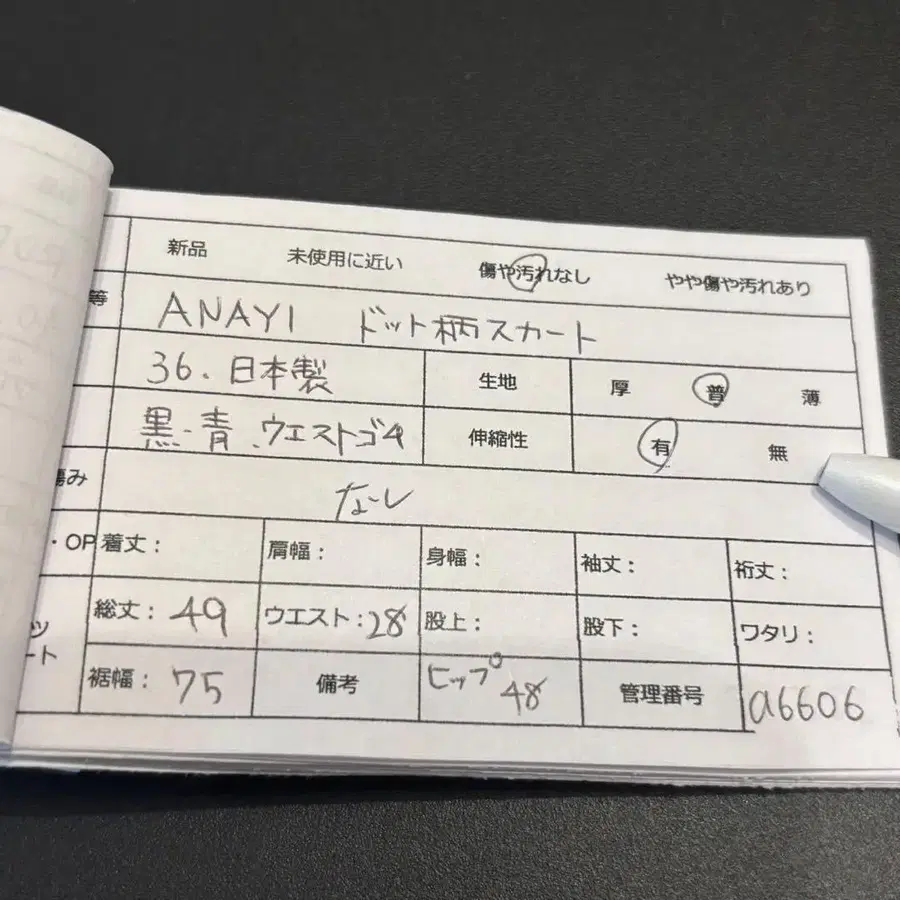 新品 未使用に近い 傷や汚れなし やや傷や汚れあり
等 ANAYI ドット柄スカート
36.日本製 生地 厚 普 薄
黒.青.ウエストゴム 伸縮性 有 無
傷み なし
・OP 着丈: 肩幅: 身幅: 袖丈: 裄丈:
総丈:49 ウエスト:28 股上: 股下: ワタリ:
ツ
ート
裾幅:75 備考 ヒップ48 管理番号 a6606